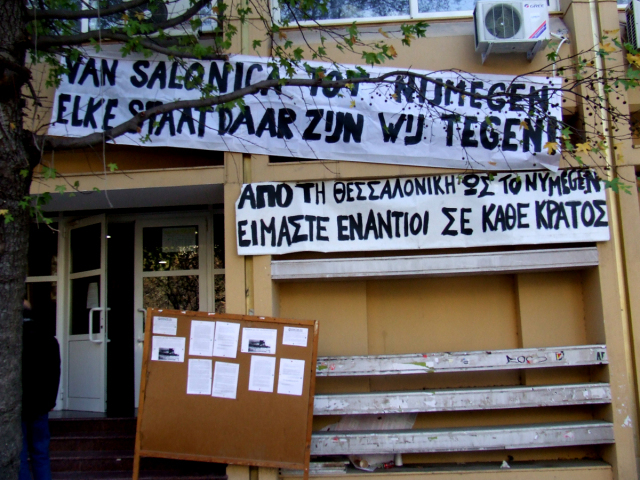 VAN SALONICA TOT NIJMEGEN
ELKE STAAT DAAR ZIJN WIJ TEGEN!
ΑΠΟ ΤΗ ΘΕΣΣΑΛΟΝΙΚΗ ΩΣ ΤΟ NYMEGEN
ΕΙΜΑΣΤΕ ΕΝΑΝΤΙΟΙ ΣΕ ΚΑΘΕ ΚΡΑΤΟΣ